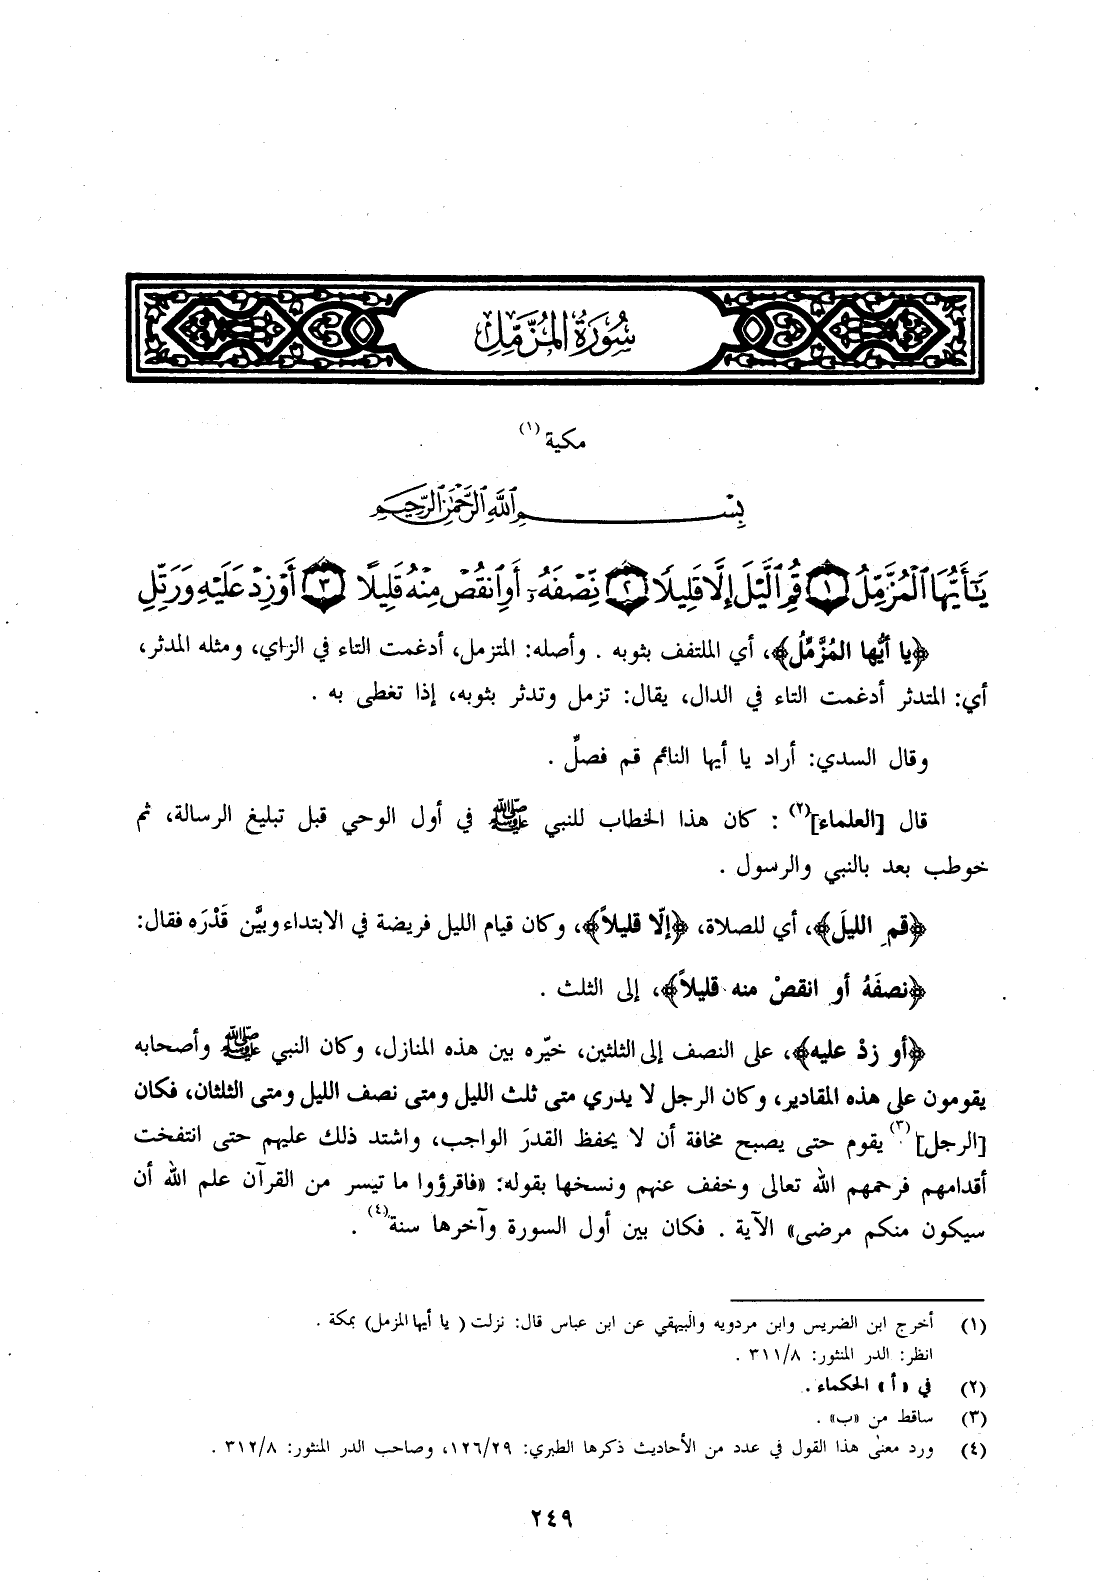 سُورَةُ المُزَّمِّلِ
مكية (١)
بِسْمِ ٱللَّهِ ٱلرَّحْمَٰنِ ٱلرَّحِيمِ
يَٰٓأَيُّهَا ٱلْمُزَّمِّلُ ١ قُمِ ٱلَّيْلَ إِلَّا قَلِيلًا ٢ نِّصْفَهُۥٓ أَوِ ٱنقُصْ مِنْهُ قَلِيلًا ٣ أَوْ زِدْ عَلَيْهِ وَرَتِّلِ
﴿يا أيُّها المُزَّمِّلُ﴾، أي الملتفف بثوبه . وأصله: المتزمل، أدغمت التاء في الزاي، ومثله المدثر،
أي: المتدثر أدغمت التاء في الدال، يقال: تزمل وتدثر بثوبه، إذا تغطى به .
وقال السدي: أراد يا أيها النائم قم فصلِّ .
قال [العلماء](٢) : كان هذا الخطاب للنبي ﷺ في أول الوحي قبل تبليغ الرسالة، ثم
خوطب بعد بالنبي والرسول .
﴿قمِ الليلَ﴾، أي للصلاة، ﴿إلّا قليلاً﴾، وكان قيام الليل فريضة في الابتداء وبيَّن قَدْرَه فقال:
﴿نصفَهُ أو انقصْ منه قليلاً﴾، إلى الثلث .
﴿أو زدْ عليه﴾، على النصف إلى الثلثين، خيّره بين هذه المنازل، وكان النبي ﷺ وأصحابه
يقومون على هذه المقادير، وكان الرجل لا يدري متى ثلث الليل ومتى نصف الليل ومتى الثلثان، فكان
[الرجل](٣) يقوم حتى يصبح مخافة أن لا يحفظ القدرَ الواجب، واشتد ذلك عليهم حتى انتفخت
أقدامهم فرحمهم الله تعالى وخفف عنهم ونسخها بقوله: «فاقرؤوا ما تيسر من القرآن علم الله أن
سيكون منكم مرضى» الآية . فكان بين أول السورة وآخرها سنة(٤) .
(١) أخرج ابن الضريس وابن مردويه والبيهقي عن ابن عباس قال: نزلت ( يا أيها المزمل) بمكة .
انظر: الدر المنثور: ٣١١/٨ .
(٢) في «أ» الحكماء .
(٣) ساقط من «ب» .
(٤) ورد معنى هذا القول في عدد من الأحاديث ذكرها الطبري: ١٢٦/٢٩، وصاحب الدر المنثور: ٣١٢/٨ .
٢٤٩